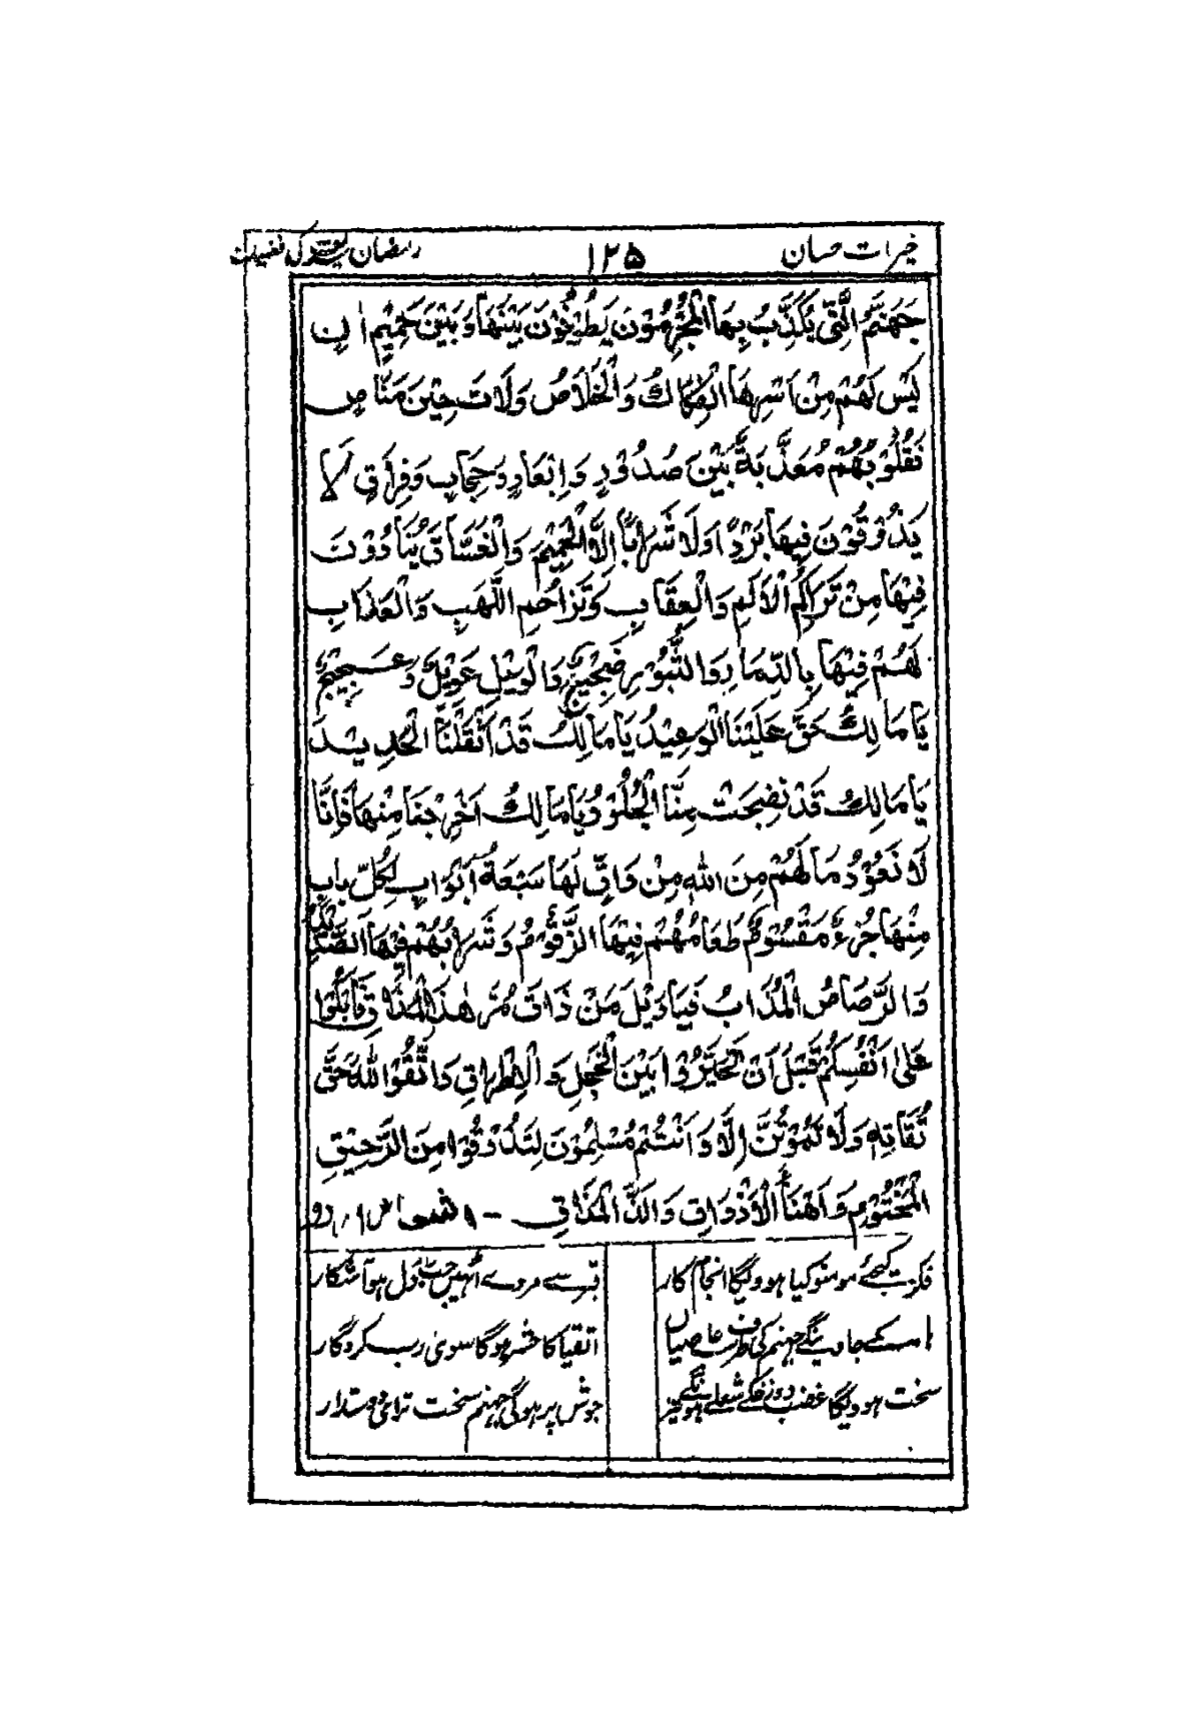 خیرات حسان ۱۲۵ رمضان کی فضیلت
جَهَنَّمُ الَّتِي يُكَذِّبُ بِهَا الْمُجْرِمُوْنَ يَطُوْفُوْنَ بَيْنَهَا وَبَيْنَ حَمِيْمٍ اٰنٍ
لَيْسَ لَهُمْ مِنْ اَسْرِهَا الْفِكَاكُ وَالْخَلَاصُ وَلَاتَ حِيْنَ مَنَاصٍ
فَقُلُوْبُهُمْ مُعَذَّبَةٌ بَيْنَ صُدُوْدٍ وَاِبْعَادٍ وَحِجَابٍ وَفِرَاقٍ لَا
يَذُوْقُوْنَ فِيْهَا بَرْدًا وَلَا شَرَابًا اِلَّا الْحَمِيْمَ وَالْغَسَّاقَ يُنَادُوْنَ
فِيْهَا مِنْ تَرَاكُمِ الْاَلَمِ وَالْعِقَابِ وَتَزَاحُمِ اللَّهَبِ وَالْعَذَابِ
لَهُمْ فِيْهَا بِالدِّمَارِ وَالثُّبُوْرِ ضَجِيْجٌ وَالْوَيْلِ عَوِيْلٌ وَعَجِيْجٌ
يَا مَالِكُ حَقَّ عَلَيْنَا الْوَعِيْدُ يَا مَالِكُ قَدْ اَثْقَلَنَا الْحَدِيْدُ
يَا مَالِكُ قَدْ نَضِجَتْ مِنَّا الْجُلُوْدُ يَا مَالِكُ اَخْرِجْنَا مِنْهَا فَاِنَّا
لَا نَعُوْدُ مَا لَهُمْ مِنَ اللهِ مِنْ وَاقٍ لَهَا سَبْعَةُ اَبْوَابٍ لِكُلِّ بَابٍ
مِنْهَا جُزْءٌ مَقْسُوْمٌ طَعَامُهُمْ فِيْهَا الزَّقُّوْمُ وَشَرَابُهُمْ فِيْهَا الصَّدِيْدُ
وَالرَّصَاصُ الْمُذَابُ فَيَا وَيْلَ مَنْ ذَاقَ مُرَّ هٰذَا الْمَذَاقِ فَابْكُوْا
عَلٰى اَنْفُسِكُمْ قَبْلَ اَنْ تَحَيَّرُوْا بَيْنَ الْخَجَلِ وَالْاِطْرَاقِ وَاتَّقُوا اللهَ حَقَّ
تُقَاتِهٖ وَلَا تَمُوْتُنَّ اِلَّا وَاَنْتُمْ مُسْلِمُوْنَ لِتَذُوْقُوْا مِنَ الرَّحِيْقِ
الْمَخْتُوْمِ وَاَهْنَأَ الْاَذْوَاقِ وَالَذَّ الْمَذَاقِ -
فکر کیجئے مومنو کیا ہوویگا انجام کار قبر سے مردے اُٹھیں جب ہول ہو آشکار
جاوینگے جہنم کی طرف عاصیاں اتقیا کا حشر ہوگا سوئ رب کردگار
سخت ہوویگا غضب دوزخ کے شعلے ہونگے جوش پر ہوگی جہنم سخت